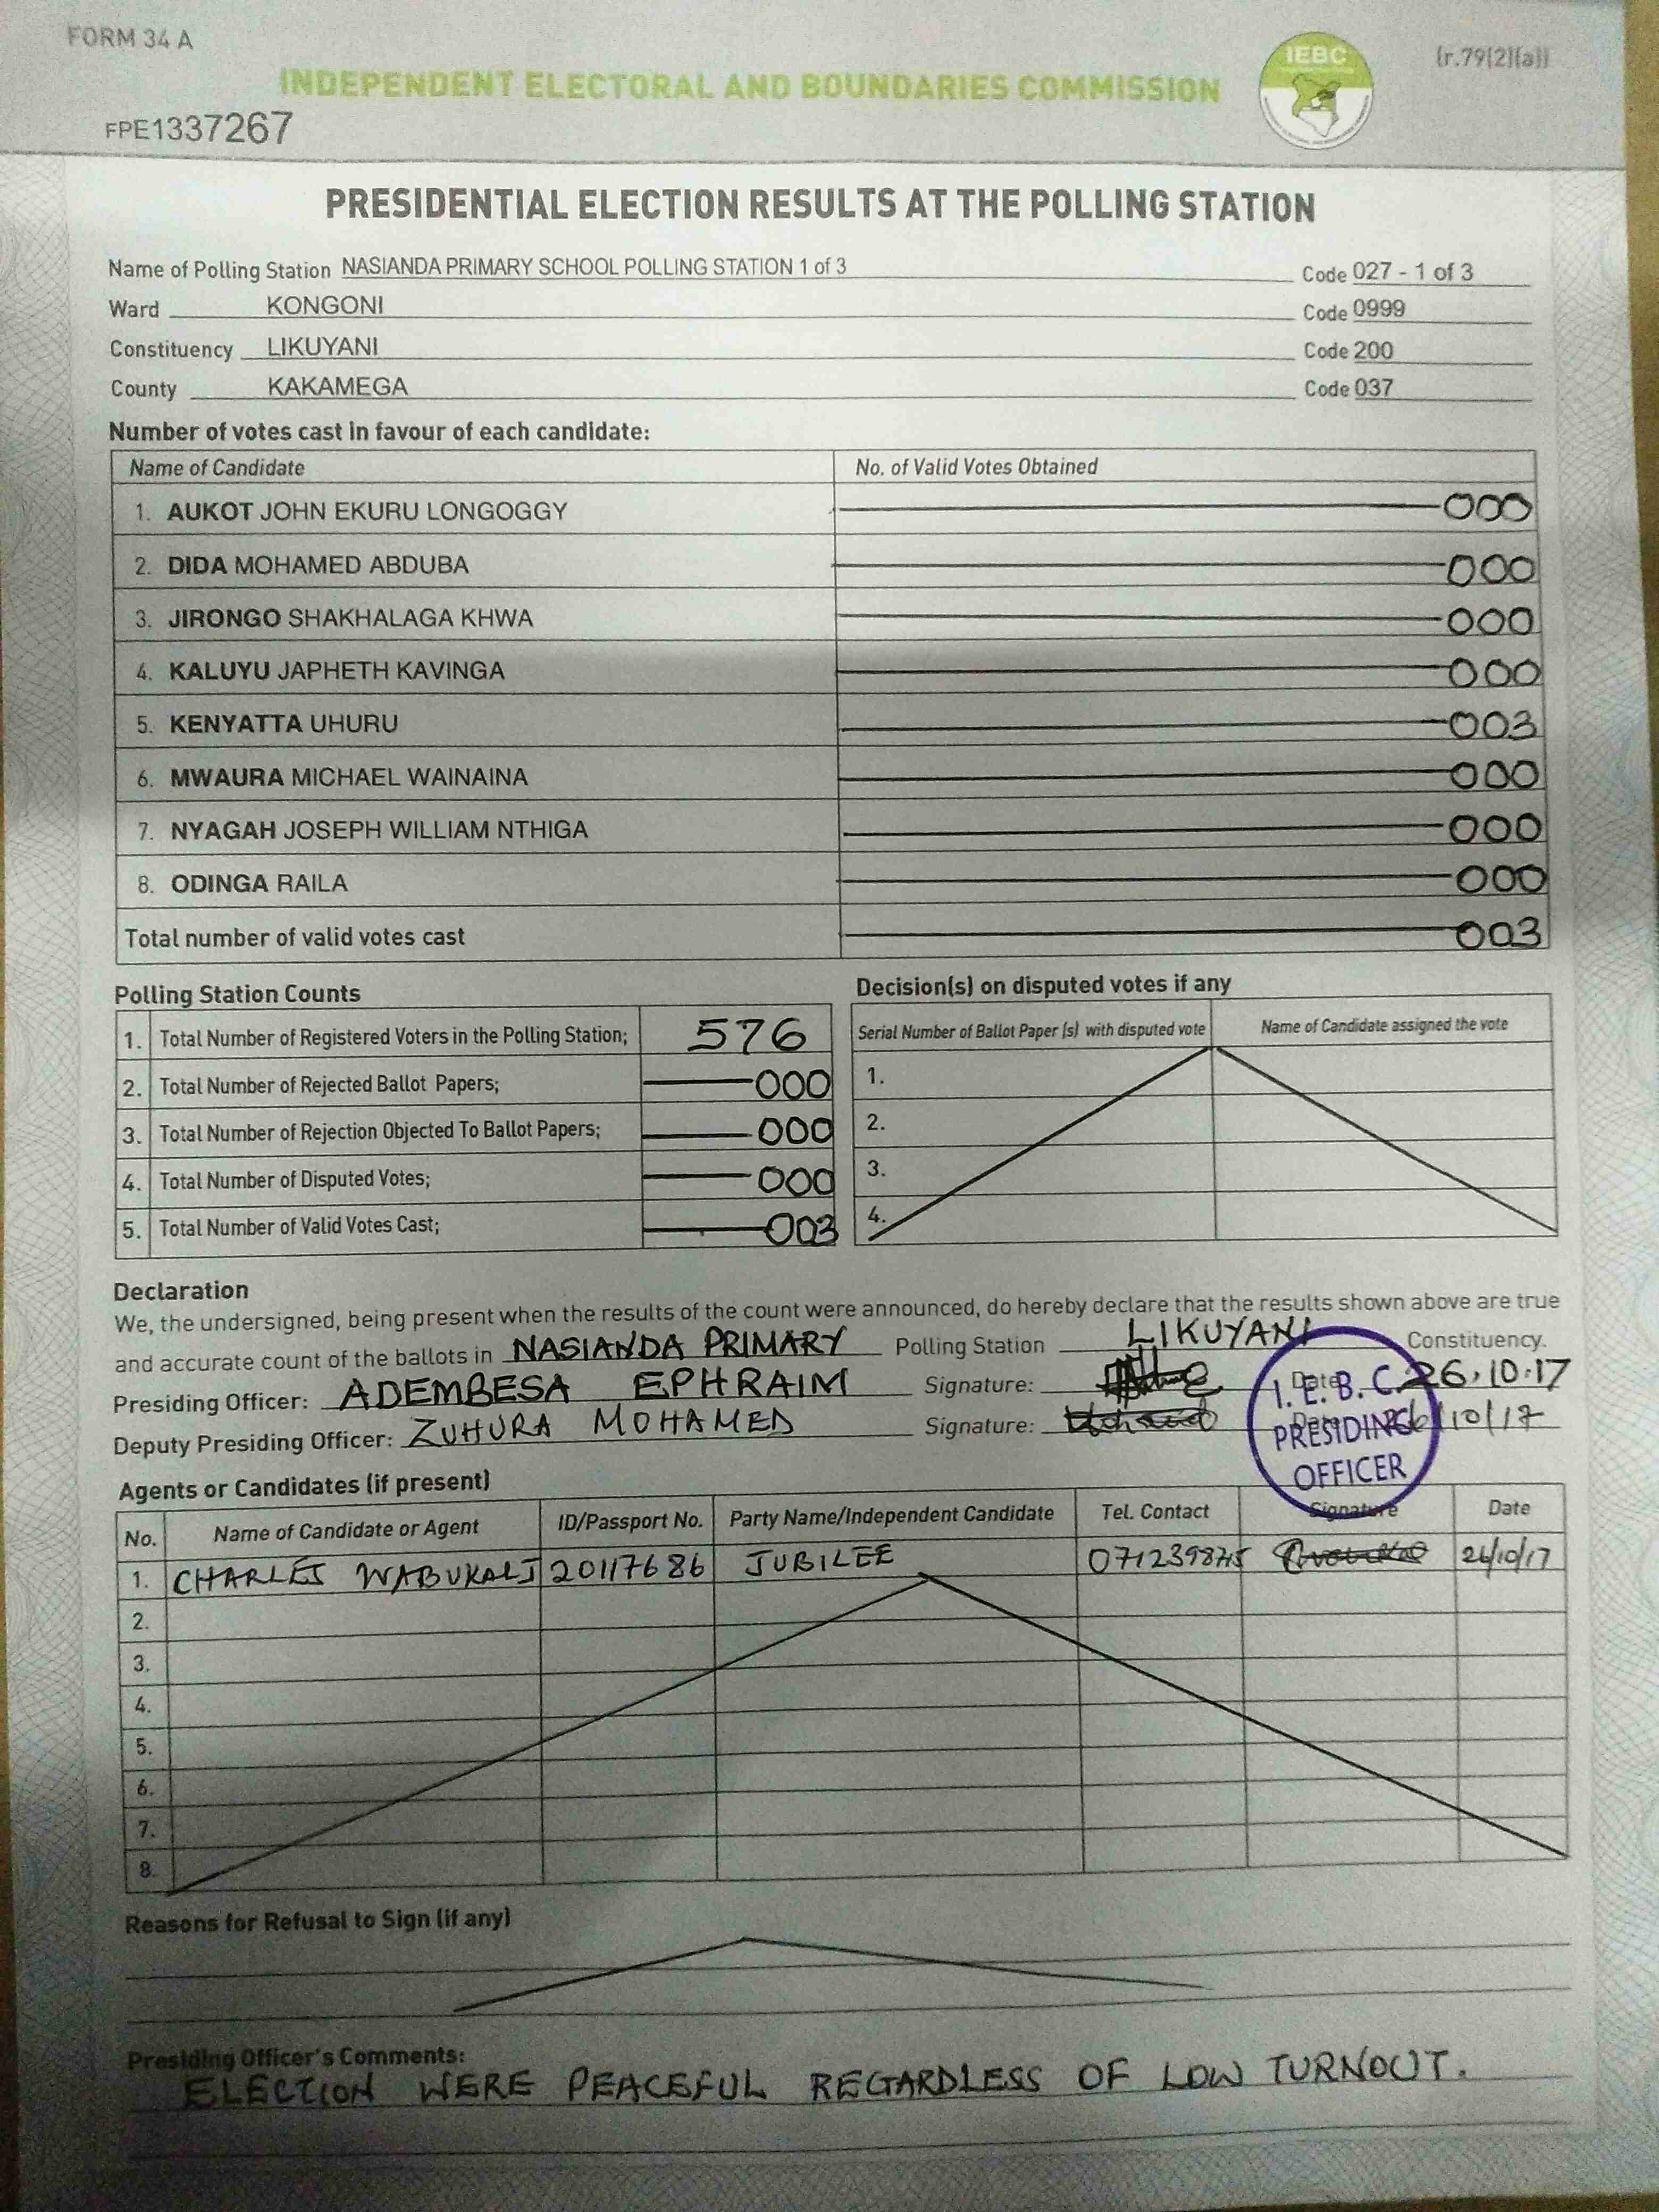 FORM 34 A
IEBC
(r.79(2)(a))
INDEPENDENT ELECTORAL AND BOUNDARIES COMMISSION
FPE1337267
PRESIDENTIAL ELECTION RESULTS AT THE POLLING STATION
Name of Polling Station NASIANDA PRIMARY SCHOOL POLLING STATION 1 of 3 Code 027 - 1 of 3
Ward KONGONI Code 0999
Constituency LIKUYANI Code 200
County KAKAMEGA Code 037
Number of votes cast in favour of each candidate:
Name of Candidate No. of Valid Votes Obtained
1. AUKOT JOHN EKURU LONGOGGY 000
2. DIDA MOHAMED ABDUBA 000
3. JIRONGO SHAKHALAGA KHWA 000
4. KALUYU JAPHETH KAVINGA 000
5. KENYATTA UHURU 003
6. MWAURA MICHAEL WAINAINA 000
7. NYAGAH JOSEPH WILLIAM NTHIGA 000
8. ODINGA RAILA 000
Total number of valid votes cast 003
Polling Station Counts
1. Total Number of Registered Voters in the Polling Station; 576
2. Total Number of Rejected Ballot Papers; 000
3. Total Number of Rejection Objected To Ballot Papers; 000
4. Total Number of Disputed Votes; 000
5. Total Number of Valid Votes Cast; 003
Decision(s) on disputed votes if any
Serial Number of Ballot Paper (s) with disputed vote Name of Candidate assigned the vote
1.
2.
3.
4.
Declaration
We, the undersigned, being present when the results of the count were announced, do hereby declare that the results shown above are true
and accurate count of the ballots in NASIANDA PRIMARY Polling Station LIKUYANI Constituency.
Presiding Officer: ADEMBESA EPHRAIM Signature: Date 26.10.17
Deputy Presiding Officer: ZUHURA MOHAMED Signature: Date 26/10/17
I.E.B.C.
PRESIDING
OFFICER
Agents or Candidates (if present)
No. Name of Candidate or Agent ID/Passport No. Party Name/Independent Candidate Tel. Contact Signature Date
1. CHARLES 20117686 JUBILEE 26/10/17
2.
3.
4.
5.
6.
7.
8.
Reasons for Refusal to Sign (if any)
Presiding Officer's Comments:
ELECTION WERE PEACEFUL REGARDLESS OF LOW TURNOUT.